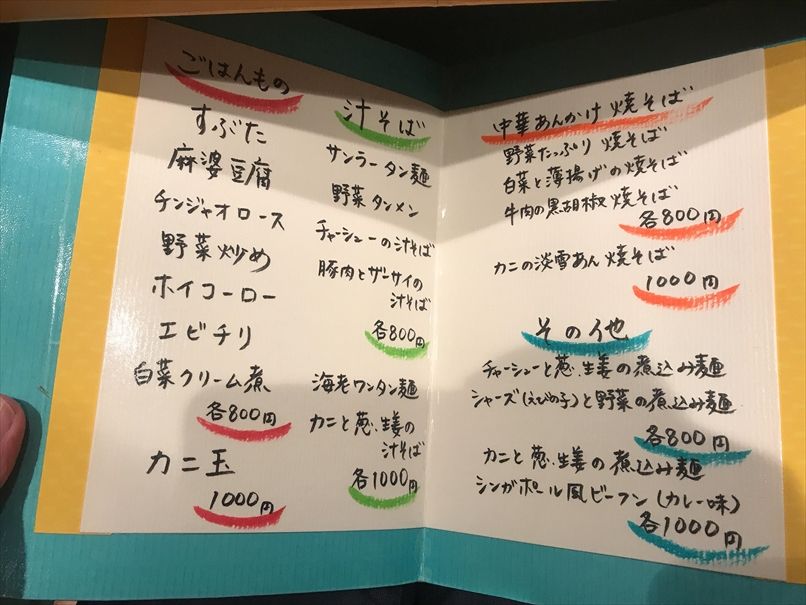 ごはんもの
すぶた
麻婆豆腐
チンジャオロース
野菜炒め
ホイコーロー
エビチリ
白菜クリーム煮
各800円
カニ玉
1000円
汁そば
サンラータン麺
野菜タンメン
チャーシューの汁そば
豚肉とザーサイの
汁そば
各800円
海老ワンタン麺
カニと葱.生姜の
汁そば
各1000円
中華あんかけ焼そば
野菜たっぷり焼そば
白菜と薄揚げの焼そば
牛肉の黒胡椒焼そば
各800円
カニの淡雪あん焼そば
1000円
その他
チャーシューと葱.生姜の煮込み麺
シャーズ(えびの子)と野菜の煮込み麺
各800円
カニと葱.生姜の煮込み麺
シンガポール風ビーフン(カレー味)
各1000円